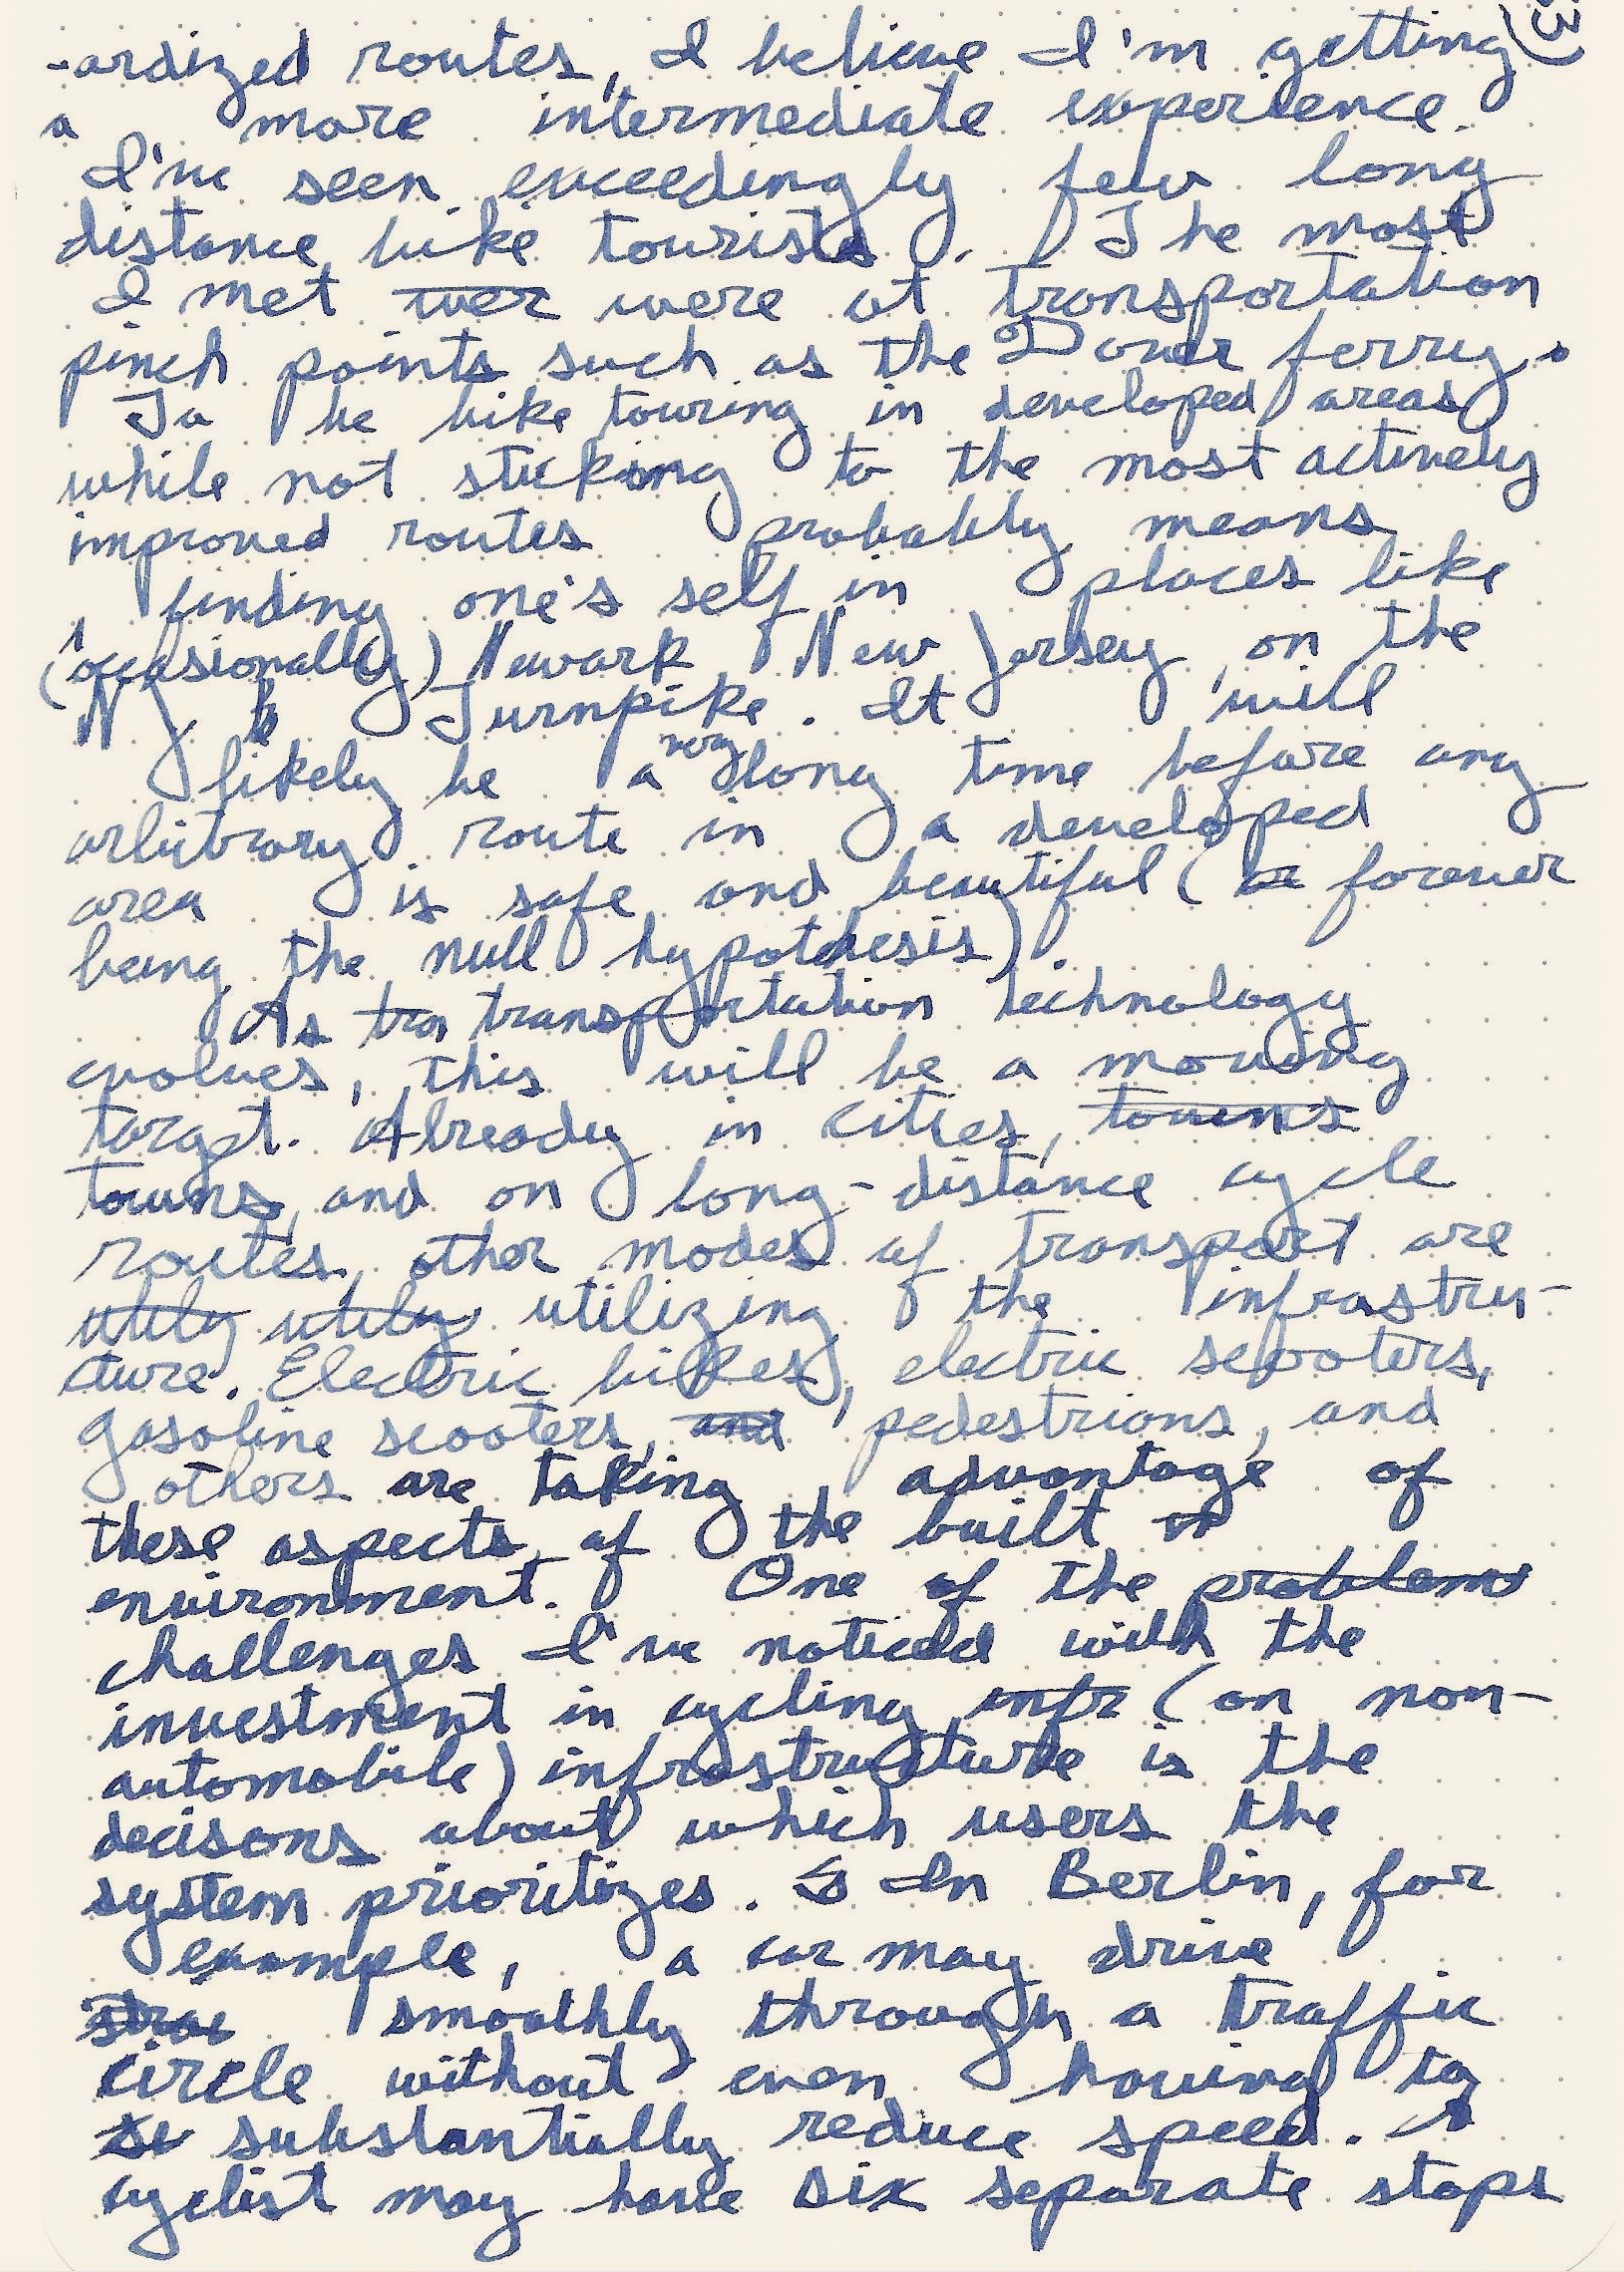 -ardized routes, I believe I'm getting (3)
a more intermediate experience.
I've seen exceedingly few long
distance bike tourists. The most
I met wer were at transportation
pinch points such as the Dover ferry.
To be bike touring in developed areas
while not sticking to the most actively
improved routes probably means
finding one's self in places like
(occasionally) Newark, New Jersey, on the
NJ Turnpike. It will
likely be a very long time before any
arbitrary route in a developed
area is safe and beautiful (or forever
being the null hypothesis).
As tra transportation technology
evolves, this will be a moving
target. Already in cities, towns
towns, and on long-distance cycle
routes, other modes of transport are
utily utily utilizing the infrastru-
cture. Electric bikes, electric scooters,
gasoline scooters, and pedestrians, and
others are taking advantage of
these aspects of the built
environment. One of the problems
challenges I've noticed with the
investment in cycling infr (on non-
automobile) infrastructure is the
decisons about which users the
system prioritizes. S In Berlin, for
example, a car may drive
smoothly through a traffic
circle without even having to
su substantially reduce speed. A
cyclist may have six separate stops